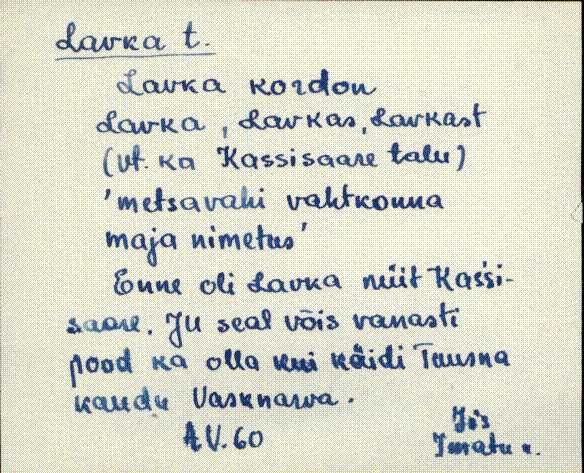 Lavka t.
Lavka kordon
Lavka, Lavkas, Lavkast
(vt. ka Kassisaare talu)
'metsavahi vahtkonna
maja nimetus'
Enne oli Lavka nüit Kassi-
saare. Ju seal võis vanasti
pood ka olla kui käidi Tuusna
kaudu Vasknarva.
AV. 60
Iis
Imatu k.